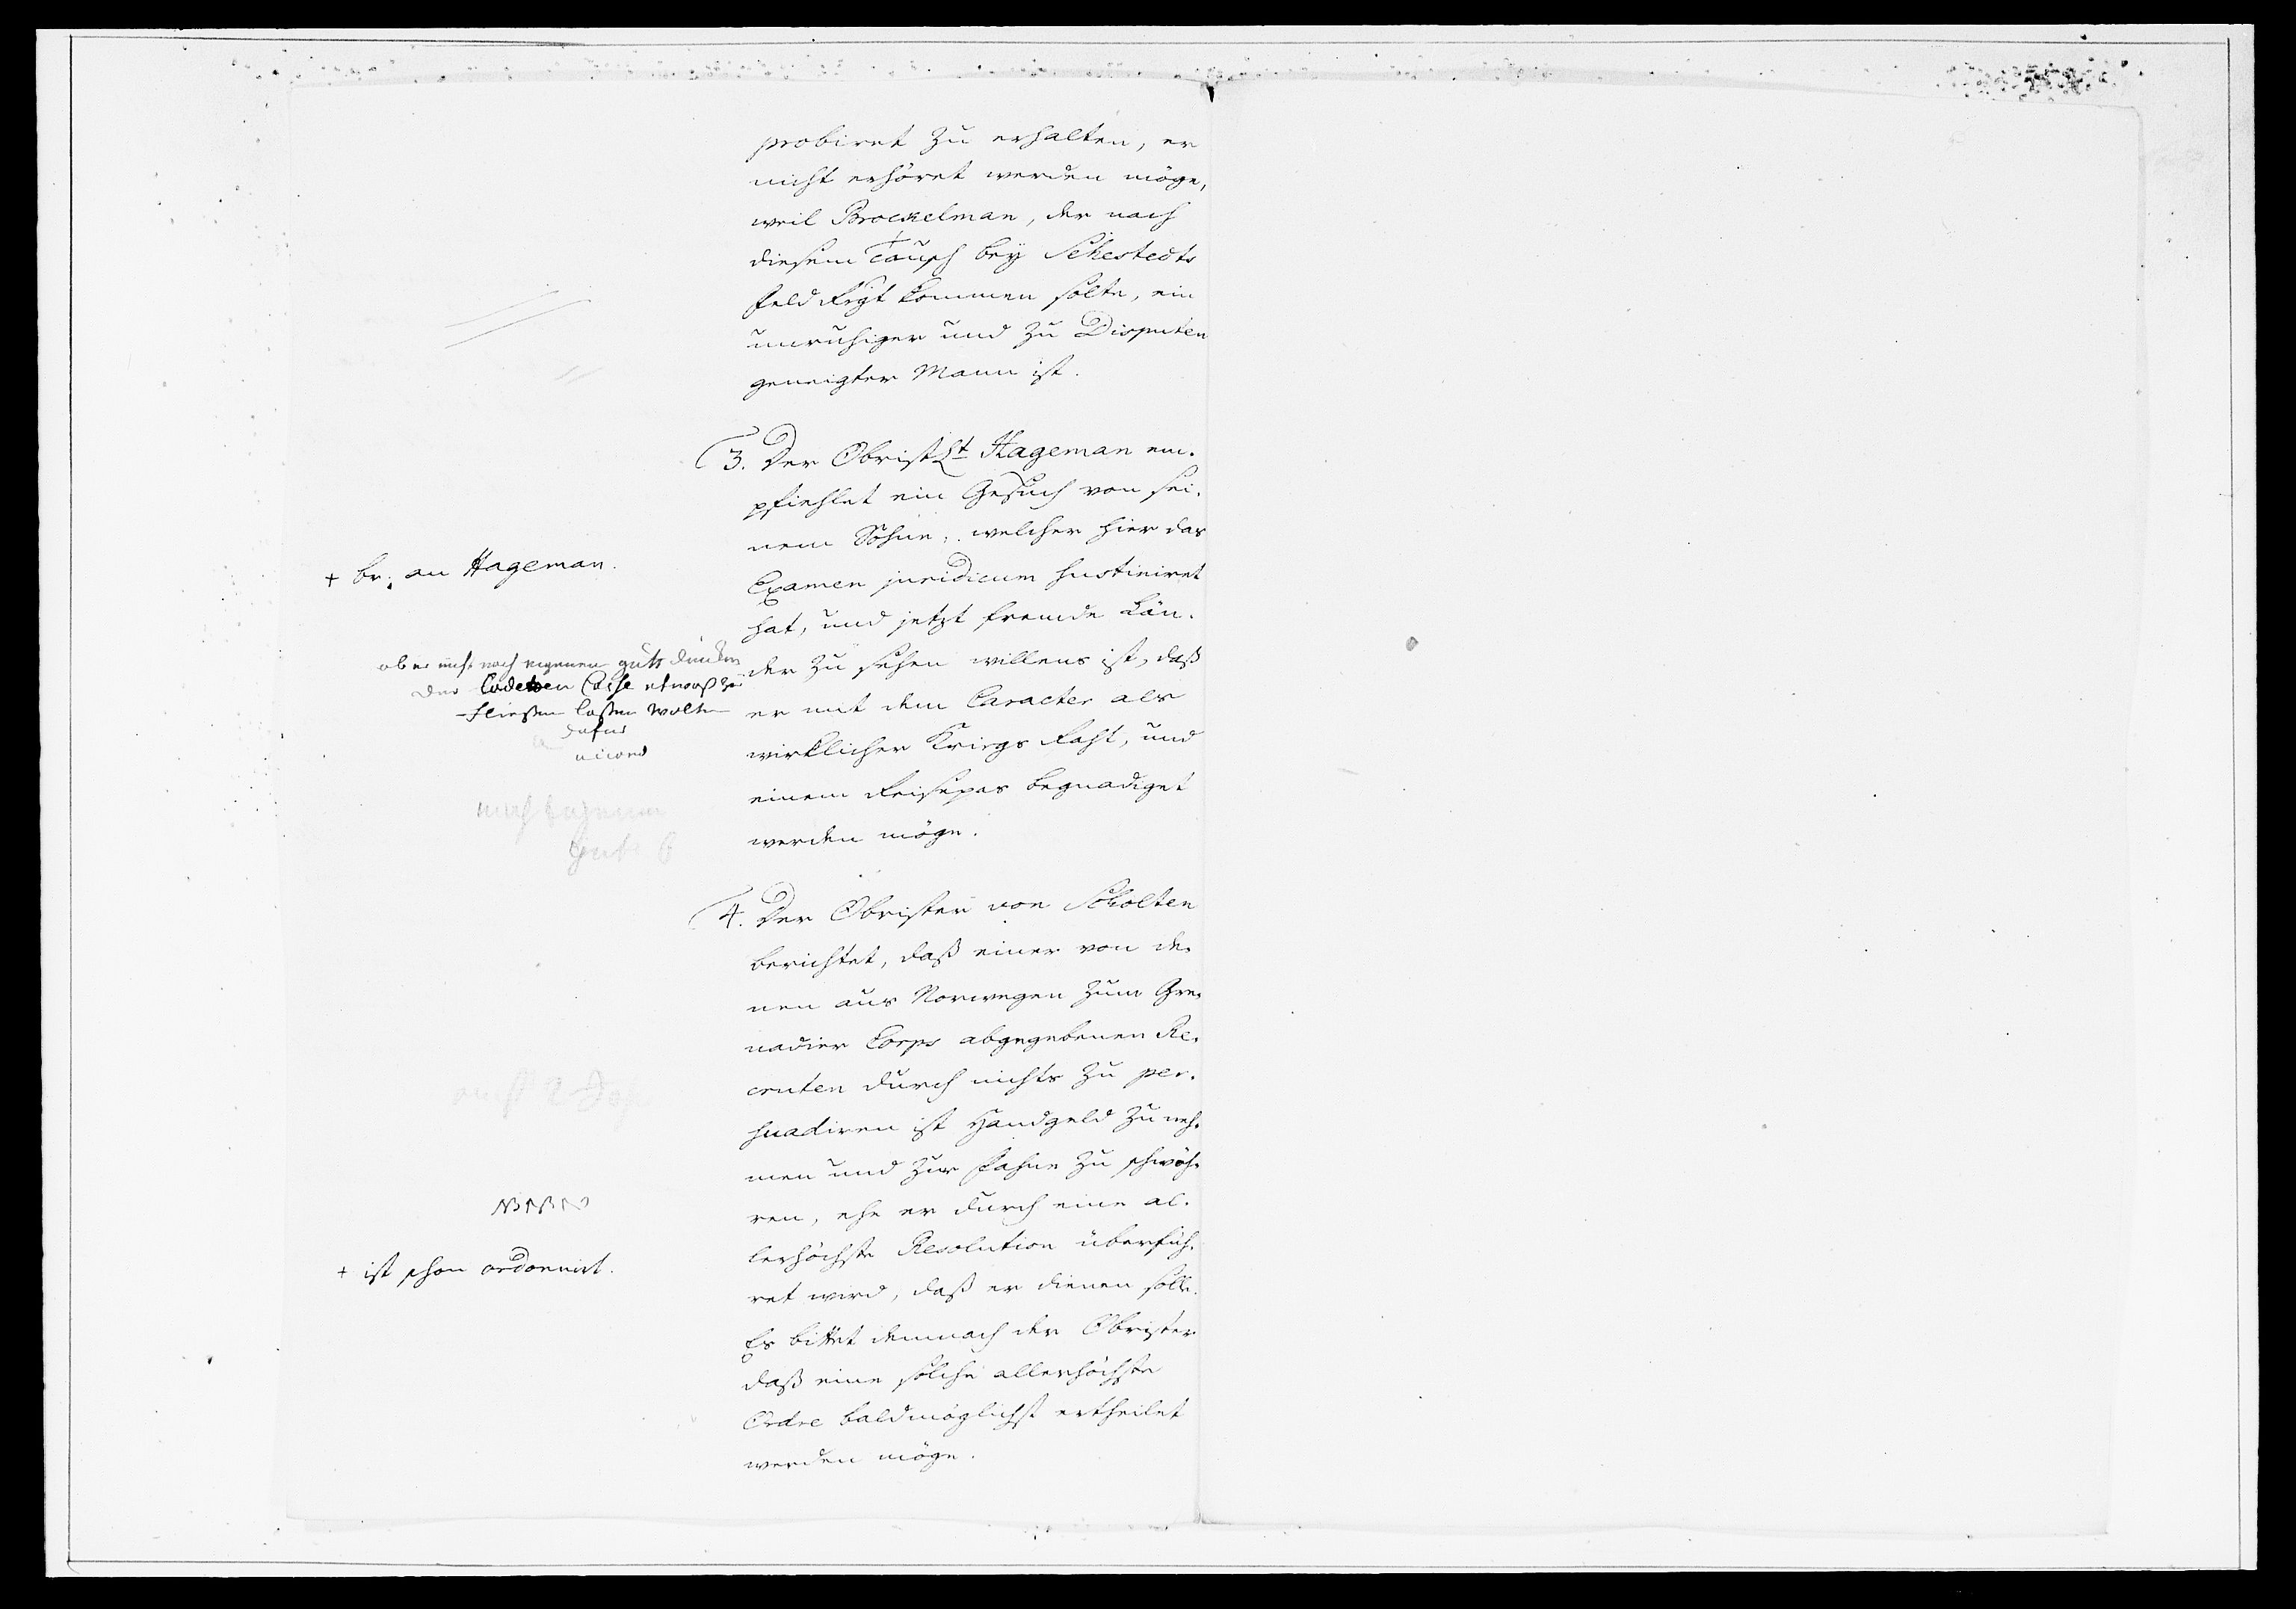 probiret zu erhalten, er
nicht erhöret werden möge,
weil Brockelman, der nach
diesem Tausch bey Sehestedts
seld Rgt kommen solte, ein
unruhiger und zu Disputen
geneigter Mann ist.
3. Der ObristLt Hageman em-
pfiehlet ein Gesuch von sei-
nem Sohne, welcher hier das
Examen juridicum sustiniret
hat, und jetzt fremde Län-
der zu sehen willens ist, daß
er mit dem Caracter als
wirklicher Kriegs Raht, und
einem Reisepas begnadiget
werden möge.
+ br: an Hageman.
ob er nicht nach eigenen guts duncken
der Cadetten Casse etwaß zu
fließen laßen wolte
dafür
nach eigenem
guts
4. Der Obrister von Scholten
berichtet, daß einer von de-
nen aus Norwegen zum Gre-
nadier Corps abgegebenen Re-
cruten durch nichts zu per-
suadiren ist Handgeld zu neh-
men und zur Fahne zu schwöh-
ren, ehe er durch eine al-
lerhöchste Resolution überfüh-
ret wird, daß er dienen solle.
Es bittet demnach der Obrister
daß eine solche allerhöchste
Ordre baldmöglichst ertheilet
werden möge.
NB NB
+ ist schon ordonnirt.